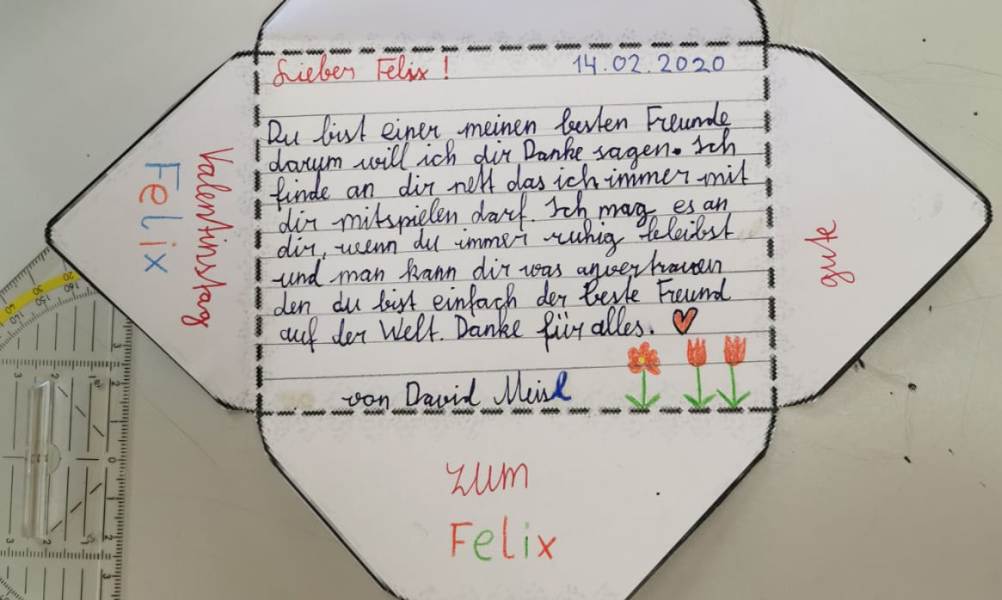 Lieber Felix! 14.02.2020
Du bist einer meinen besten Freunde
darum will ich dir Danke sagen. Ich
finde an dir nett das ich immer mit
dir mitspielen darf. Ich mag es an
dir, wenn du immer ruhig beleibst
und man kann dir was anvertrauen
den du bist einfach der beste Freund
auf der Welt. Danke für alles.
von David Meisl
Valentinstag
Felix
gute
zum
Felix